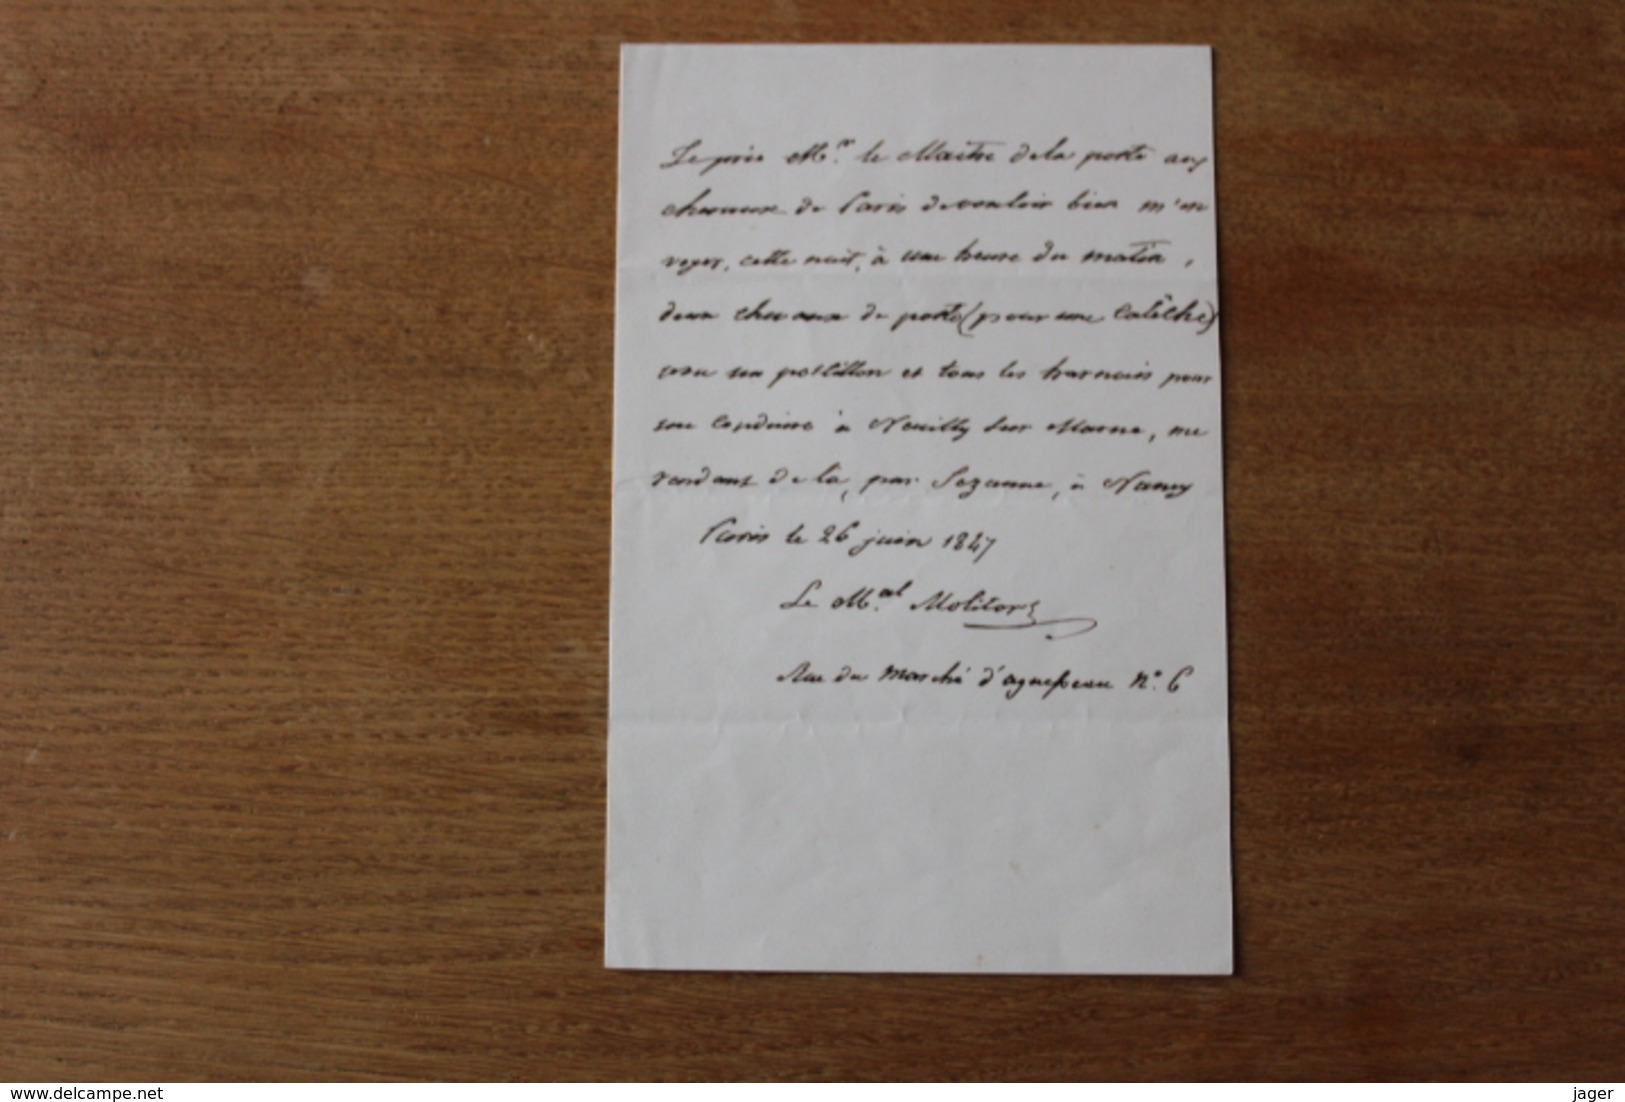 Je prie M.r le Maître de la poste aux
chevaux de Paris de vouloir bien m'en
voyer, cette nuit, à une heure du matin,
deux chevaux de poste (pour une Calêche)
avec un postillon et tous les harnois pour
me conduire à Neuilly sur Marne, me
rendant de là, par Sezanne, à Nancy
Paris le 26 juin 1847
Le M.al Molitor
Rue du marché d'aguesseau N.o 6
www.delcampe.net
jager